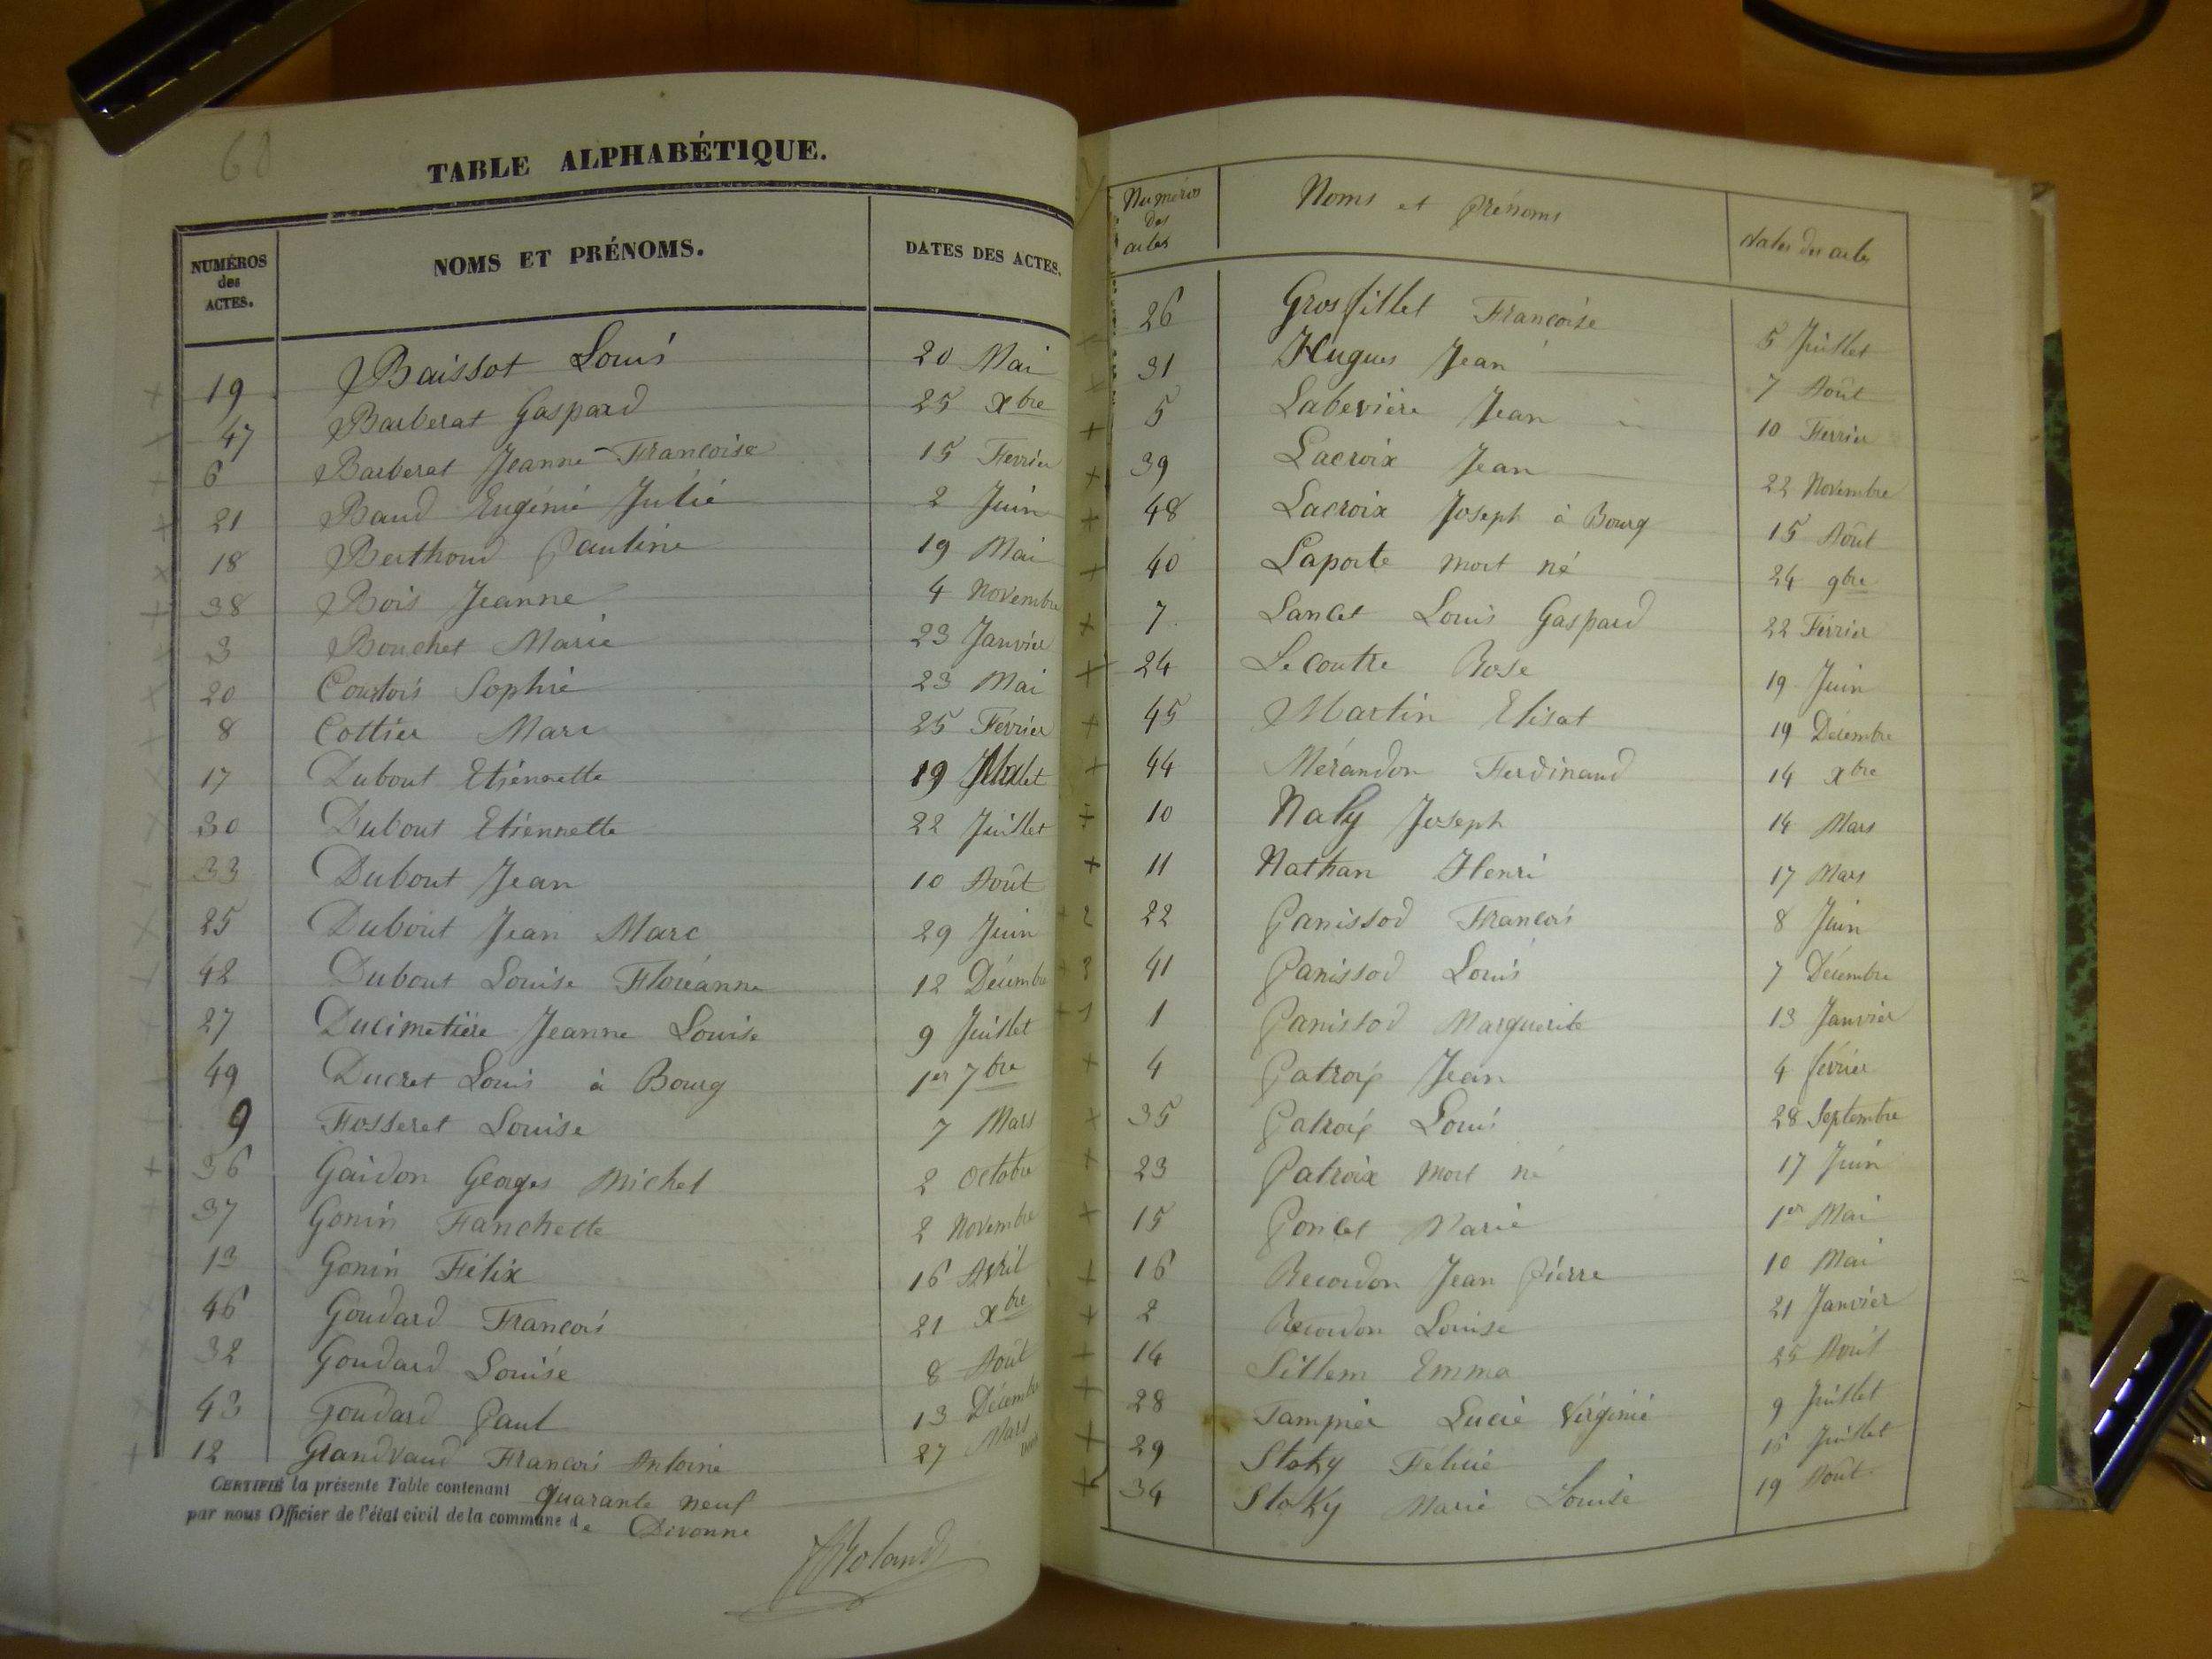 60
TABLE ALPHABÉTIQUE.
NUMÉROS des ACTES. NOMS ET PRÉNOMS. DATES DES ACTES.
19 Baissot Louis 20 Mai
47 Barberat Gaspard 25 Xbre
6 Barberat Jeanne-Francoise 15 Fevrier
21 Baud Eugénie Julie 2 Juin
18 Berthoud Pauline 19 Mai
38 Bois Jeanne 4 Novembre
3 Bouchet Marie 23 Janvier
20 Courtois Sophie 23 Mai
8 Cottier Marc 25 Février
17 Dubout Etiennette 19
30 Dubout Etiennette 22 Juillet
33 Dubout Jean 10 Août
25 Dubout Jean Marc 29 Juin
42 Dubout Louise Floréanne 12 Décembre
27 Ducimetière Jeanne Louise 9 Juillet
49 Ducret Louis à Bourg 1er 7bre
9 Fosseret Louise 7 Mars
36 Gaidon Georges Michel 2 Octobre
37 Gonin Fanchette 2 Novembre
13 Gonin Félix 16 Avril
46 Goudard Francois 21 Xbre
32 Goudard Louise 8 Août
43 Goudard Paul 13 Décembre
12 Grandvaud Francois Antoine 27 Mars
CERTIFIÉ la présente Table contenant quarante neuf
par nous Officier de l'état civil de la commune de Divonne
Roland
Numéros des actes Noms et Prénoms dates des actes
26 Grosfillet Francoise 5 Juillet
31 Hugues Jean 7 Août
5 Labevière Jean 10 Fevrier
39 Lacroix Jean 22 Novembre
48 Lacroix Joseph à Bourg 15 Août
40 Laporte mort né 24 9bre
7 Lancet Louis Gaspard 22 Février
24 Lecoutre Rose 19 Juin
45 Martin Elisat 19 Décembre
44 Mérandon Ferdinand 14 Xbre
10 Naly Joseph 14 Mars
11 Nathan Henri 17 Mars
22 Panissod Francois 8 Juin
41 Panissod Louis 7 Décembre
1 Panissod Marguerite 13 Janvier
4 Patroix Jean 4 février
35 Patroix Louis 28 Septembre
23 Patroix mort né 17 Juin
15 Poncet Marie 1er Mai
16 Recordon Jean Pierre 10 Mai
2 Recordon Louise 21 Janvier
14 Sillem Emma 25 Avril
28 Tampier Lucie Virginie 9 Juillet
29 Stoky Félicie 15 Juillet
34 Stoky Marie Louise 19 Août